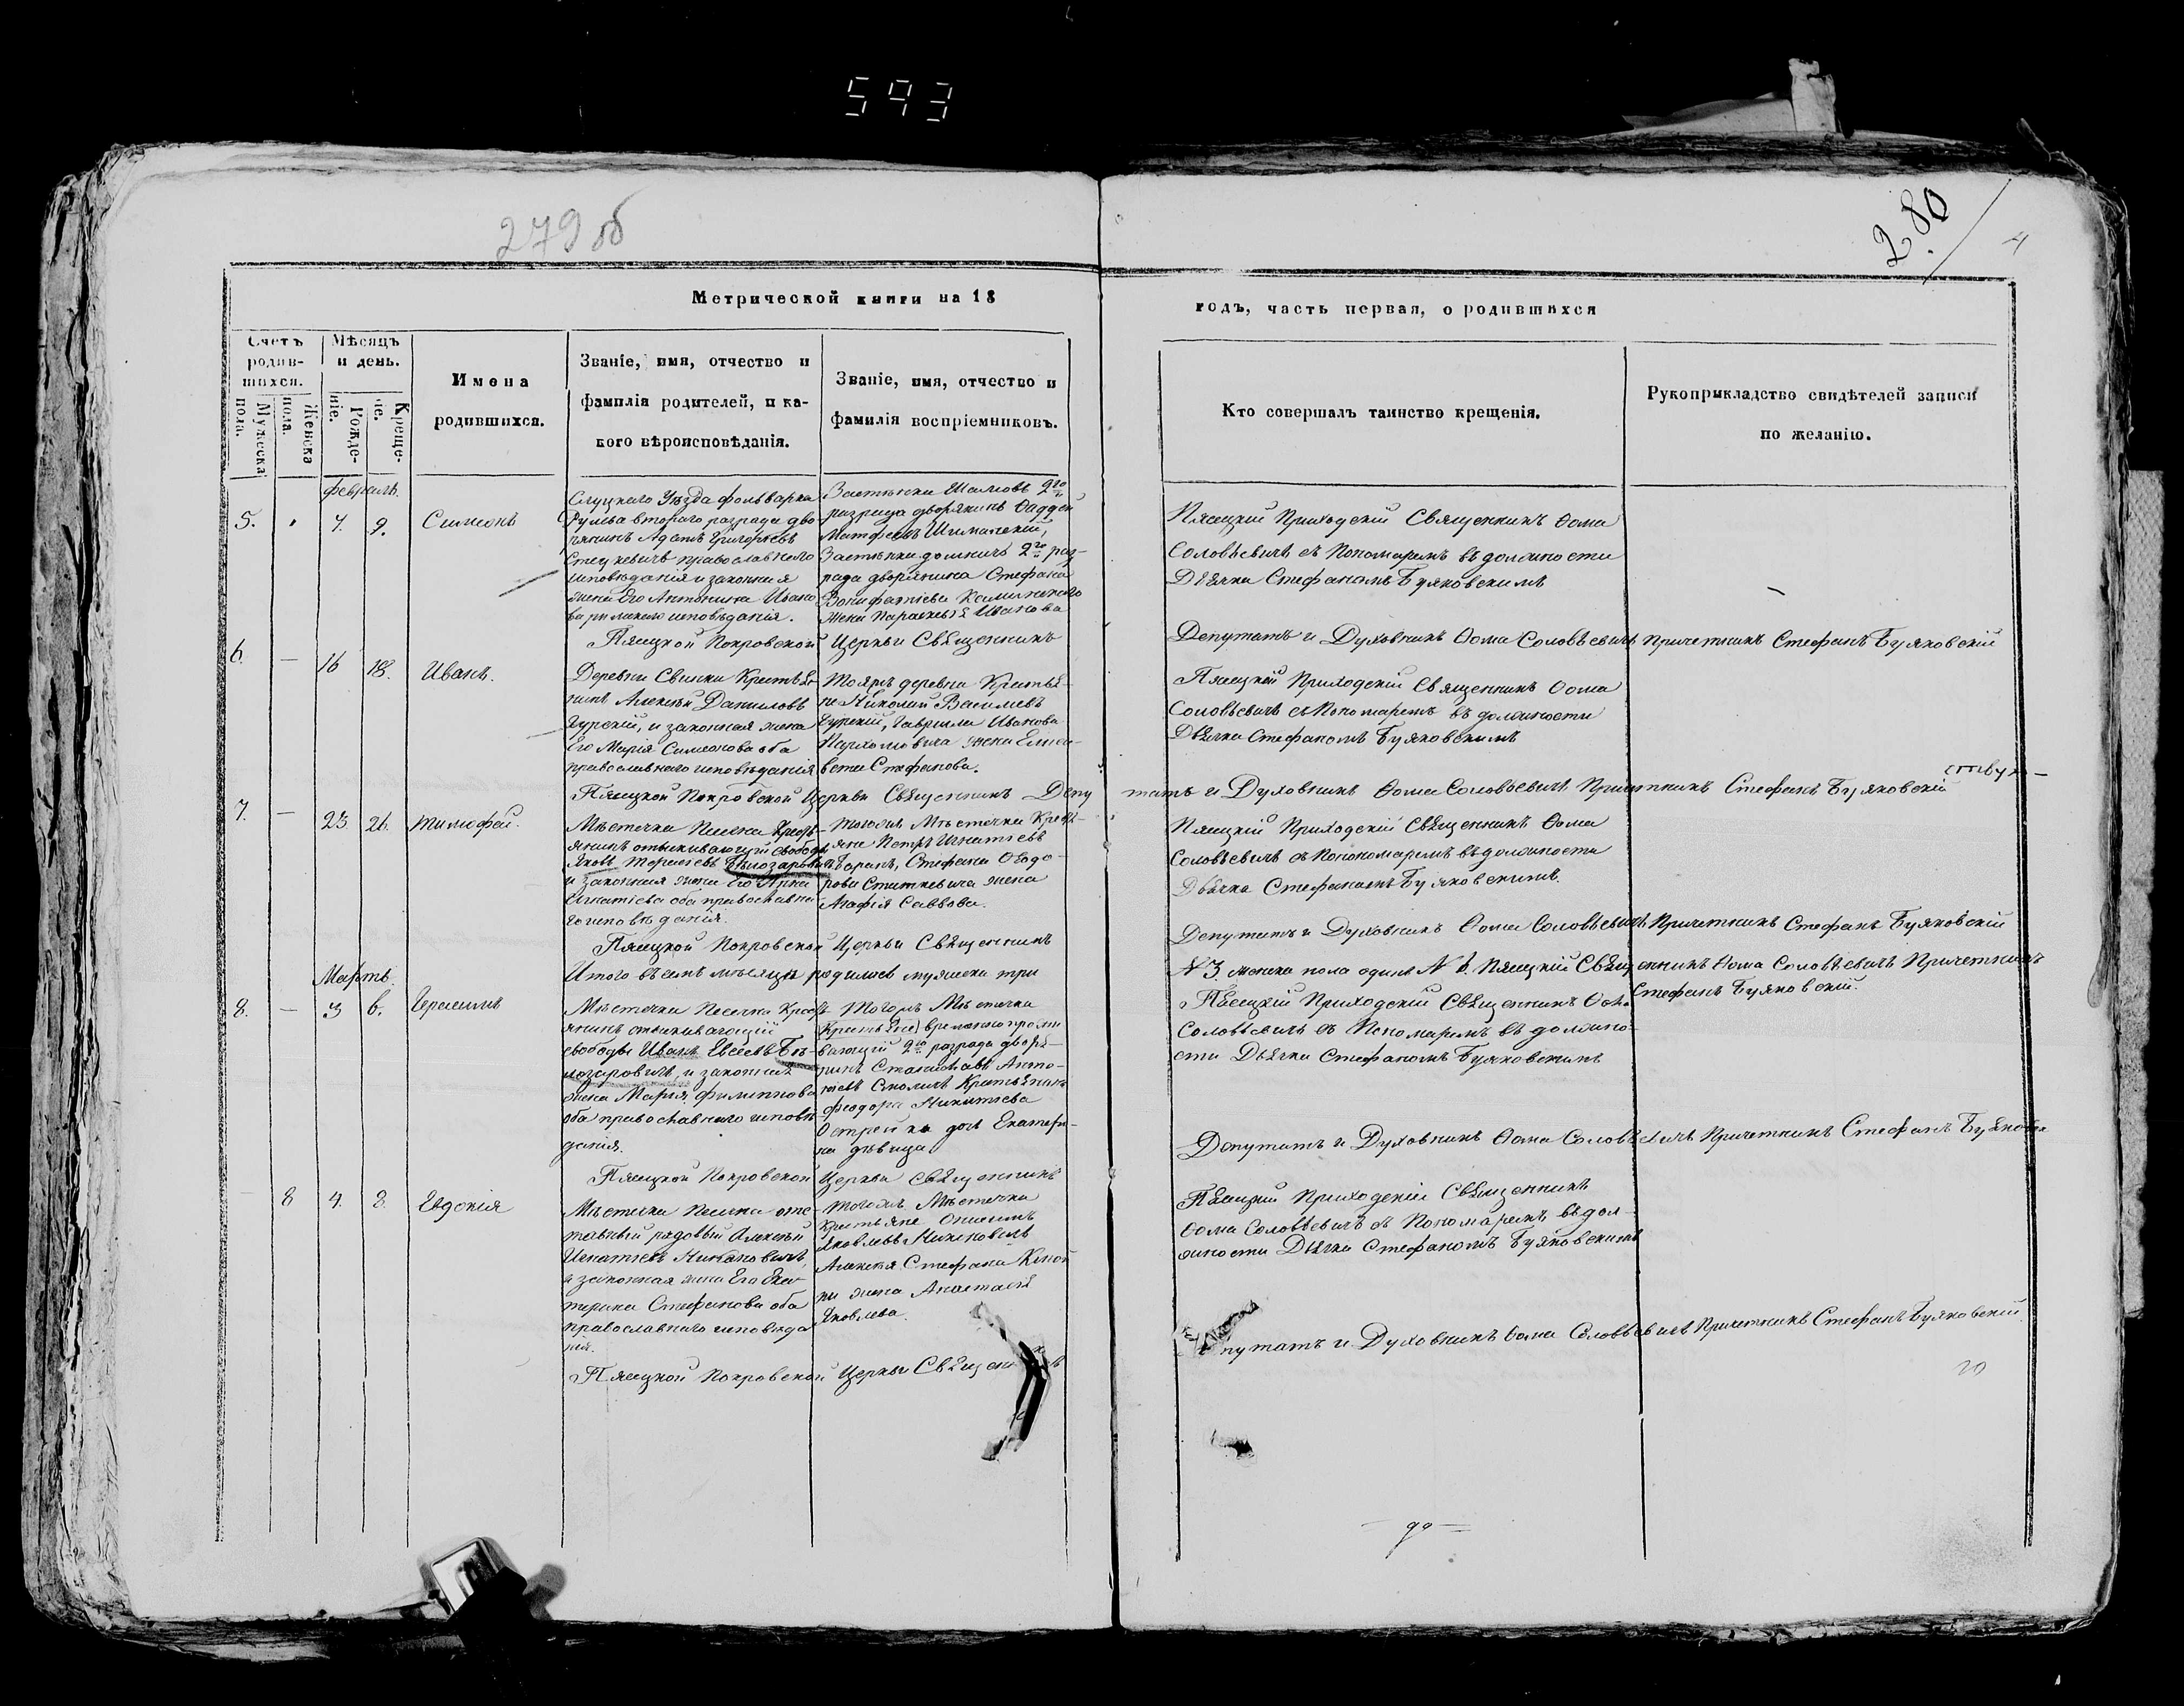 593
279 об
280
4
Метрической книги на 18
годъ, часть первая, о родившихся
Счетъ родив-шихся.
Мѣсяцъ и день.
Мужеска пола.
Женска пола.
Рожде-ніе.
Креще-
Имена
родившихся.
Званіе, имя, отчество и
фамилія родителей, и ка-
кого вѣроисповѣданія.
Званіе, имя, отчество и
фамилія воспріемниковъ.
Кто совершалъ таинство крещенія.
Рукоприкладство свидѣтелей записи
по желанію.
февраль.
5.
7.
9.
Симеонъ
Слуцкаго Уѣзда фольварка
втораго разряда дво-
рянинъ Адамъ Григорьевъ
православнаго
исповѣданія и законная
жена Его Антонина Ивано
ва римскаго исповѣданія.
Застѣнка 2го
разряда дворянинъ Фаддей
Матфеевъ Шиманскій,
Застѣнка 2го раз-
ряда дворянина Стефана
Вонифатіева Каминскаго
жена Параскевія Иванова
Пясецкій Приходскій Священникъ Ѳома
Соловьевичъ съ Пономаремъ въ должности
Дьячка Стефаномъ Буяковскимъ
Пясецкой Покровской Церкви Священникъ
Депутатъ и Духовникъ Ѳома Соловьевичъ Причетникъ Стефанъ Буяковскій
6.
—
16
18.
Иванъ.
Деревни Свинки Крестья-
нинъ Алексѣй Даниловъ
Турскій, и законная жена
Его Марія Симеонова оба
православнаго исповѣданія
Тояжъ деревни Крестья-
не Николай Васильевъ
Турскій, Гавріила Иванова
Пархомовича жена Елиса-
вета Стефанова.
Пясецкій Приходскій Священникъ Ѳома
Соловьевичъ съ Пономаремъ въ должности
Дьячка Стефаномъ Буяковскимъ
Пясецкой Покровской Церкви Священникъ Депу
татъ и Духовникъ Ѳома Соловьевичъ Причетникъ Стефанъ Буяковскій
7.
—
23.
26.
Тимофей.
Мѣстечка Песечна Кресть-
янинъ отыскивающій свободы
Яковъ Терентьевъ Бѣлозаровичъ
и законная жена Его Анна
Игнатіева оба православна
го исповѣданія.
Тогожъ Мѣстечка Крест-
яне Петръ Игнатіевъ
Баранъ, Стефана Ѳеодо-
рова Статкевича жена
Агафія Саввова.
Пясецкій Приходскій Священникъ Ѳома
Соловьевичъ съ Покономаремъ въ должности
Дьячка Стефаномъ Буяковскимъ.
Пясецкой Покровской Церкви Священникъ
Депутатъ и Духовникъ Ѳома Соловьевичъ Причетникъ Стефанъ Буяковскій
Итого въ семъ мѣсяцѣ родилось мужеска три
№ 3 женска пола одинъ № 1. Пясецкій Священникъ Ѳома Соловьевичъ Причетникъ
Стефанъ Буяковскій.
Мартъ.
8.
—
3
6.
Герасимъ
Мѣстечка Песечна Кресть
янинъ отыскивающій
свободы Иванъ Евсеевъ Бѣ-
лозаровичъ, и законная
жена Марія Филиппова
оба православнаго исповѣ
данія.
Тогожъ Мѣстечка
Крестьяне) временно прожи
вающій 2го разряда дворя-
нинъ Станиславъ Анто-
ніевъ Смоличъ Крестьянина
Феодора Никитіева
дочь Екатери-
на дѣвица
Пясецкій Приходскій Священникъ Ѳома
Соловьевичъ съ Пономаремъ въ должно-
сти Дьячка Стефаномъ Буяковскимъ
Пясецкой Покровской Церкви Священникъ
Депутатъ и Духовникъ Ѳома Соловьевичъ Причетникъ Стефанъ Буяковск
8
4.
8.
Евдокія
Мѣстечка Песечна отс-
тавный рядовый Алексѣй
Игнатіевъ
и законная жена Его Ека
терина Стефанова оба
православнаго исповѣда
нія.
Тогожъ Мѣстечка
Крестьяне Онисимъ
Яковлевъ
Алексѣя Стефана
жена Анастасія
Яковлева.
Пясецкій Приходскій Священникъ
Ѳома Соловьевичъ съ Пономаремъ въ дол-
жности Дьячка Стефаномъ Буяковскимъ
Пясецкой Покровской Церкви Священникъ
путатъ и Духовникъ Ѳома Соловьевичъ Причетникъ Стефанъ Буяковскій.
20